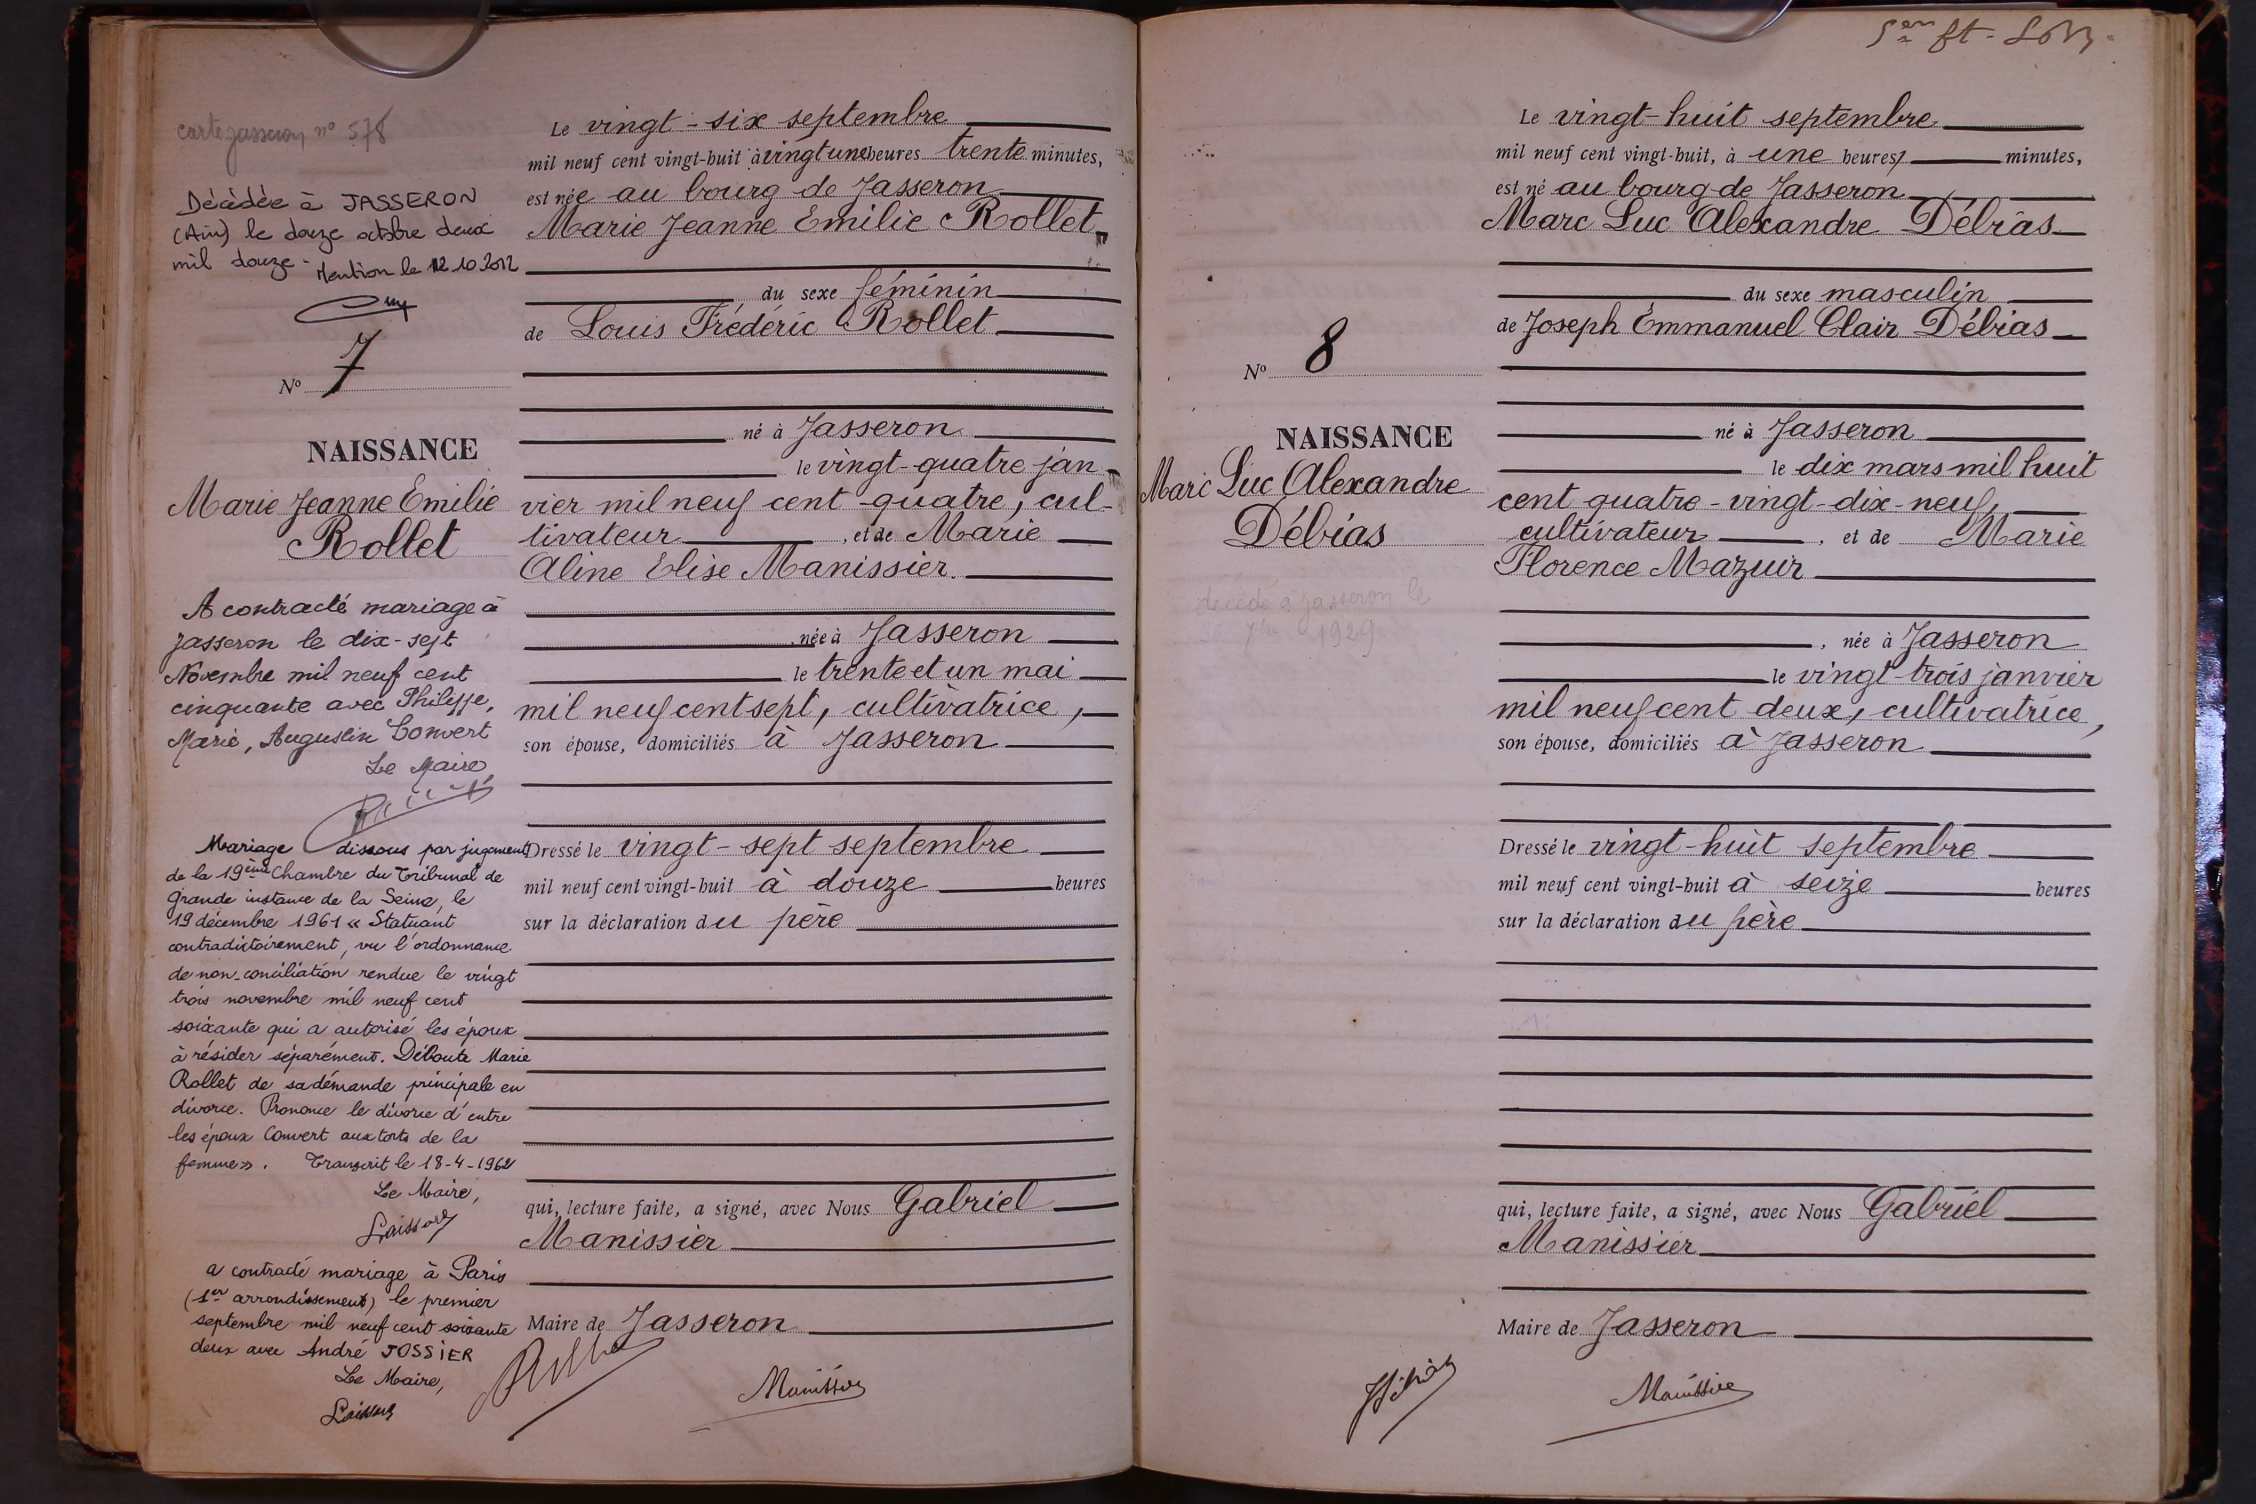 carte jasseron nº 578
Décédée à JASSERON
(Ain) le douze octobre deux
mil douze - Mention le 12.10.2012
Nº 7
NAISSANCE
Marie Jeanne Emilie
Rollet
A contracté mariage à
Jasseron le dix-sept
Novembre mil neuf cent
cinquante avec Philippe,
Marie, Augustin Convert
Le Maire,
Mariage dissous par jugement
de la 19ème Chambre du Tribunal de
Grande instance de la Seine, le
19 décembre 1961 « Statuant
contradictoirement, vu l'ordonnance
de non-conciliation rendue le vingt
trois novembre mil neuf cent
soixante qui a autorisé les époux
à résider séparément. Déboute Marie
Rollet de sa demande principale en
divorce. Prononce le divorce d'entre
les époux Convert aux torts de la
femme ». Transcrit le 18-4-1962
Le Maire,
a contracté mariage à Paris
(1er arrondissement) le premier
septembre mil neuf cent soixante
deux avec André JOSSIER
Le Maire,
Le vingt-six septembre
mil neuf cent vingt-huit à vingt une heures trente minutes,
est née au bourg de Jasseron
Marie Jeanne Emilie Rollet
du sexe féminin
de Louis Frédéric Rollet
né à Jasseron
le vingt-quatre jan-
vier mil neuf cent quatre, cul-
tivateur, et de Marie
Aline Elise Manissier.
, née à Jasseron
le trente et un mai
mil neuf cent sept, cultivatrice,
son épouse, domiciliés à Jasseron
Dressé le vingt-sept septembre
mil neuf cent vingt-huit à douze heures
sur la déclaration du père
qui, lecture faite, a signé, avec Nous Gabriel
Manissier
Maire de Jasseron
Manissier
Nº 8
NAISSANCE
Marc Luc Alexandre
Débias
décédé à Jasseron le
1929
Le vingt-huit septembre
mil neuf cent vingt-huit, à une heures, minutes,
est né au bourg de Jasseron
Marc Luc Alexandre Débias
du sexe masculin
de Joseph Émmanuel Clair Débias
né à Jasseron
le dix mars mil huit
cent quatre-vingt-dix-neuf,
cultivateur, et de Marie
Florence Mazuir
, née à Jasseron
le vingt-trois janvier
mil neuf cent deux, cultivatrice,
son épouse, domiciliés à Jasseron
Dressé le vingt-huit septembre
mil neuf cent vingt-huit à seize heures
sur la déclaration du père
qui, lecture faite, a signé, avec Nous Gabriel
Manissier
Maire de Jasseron
Manissier